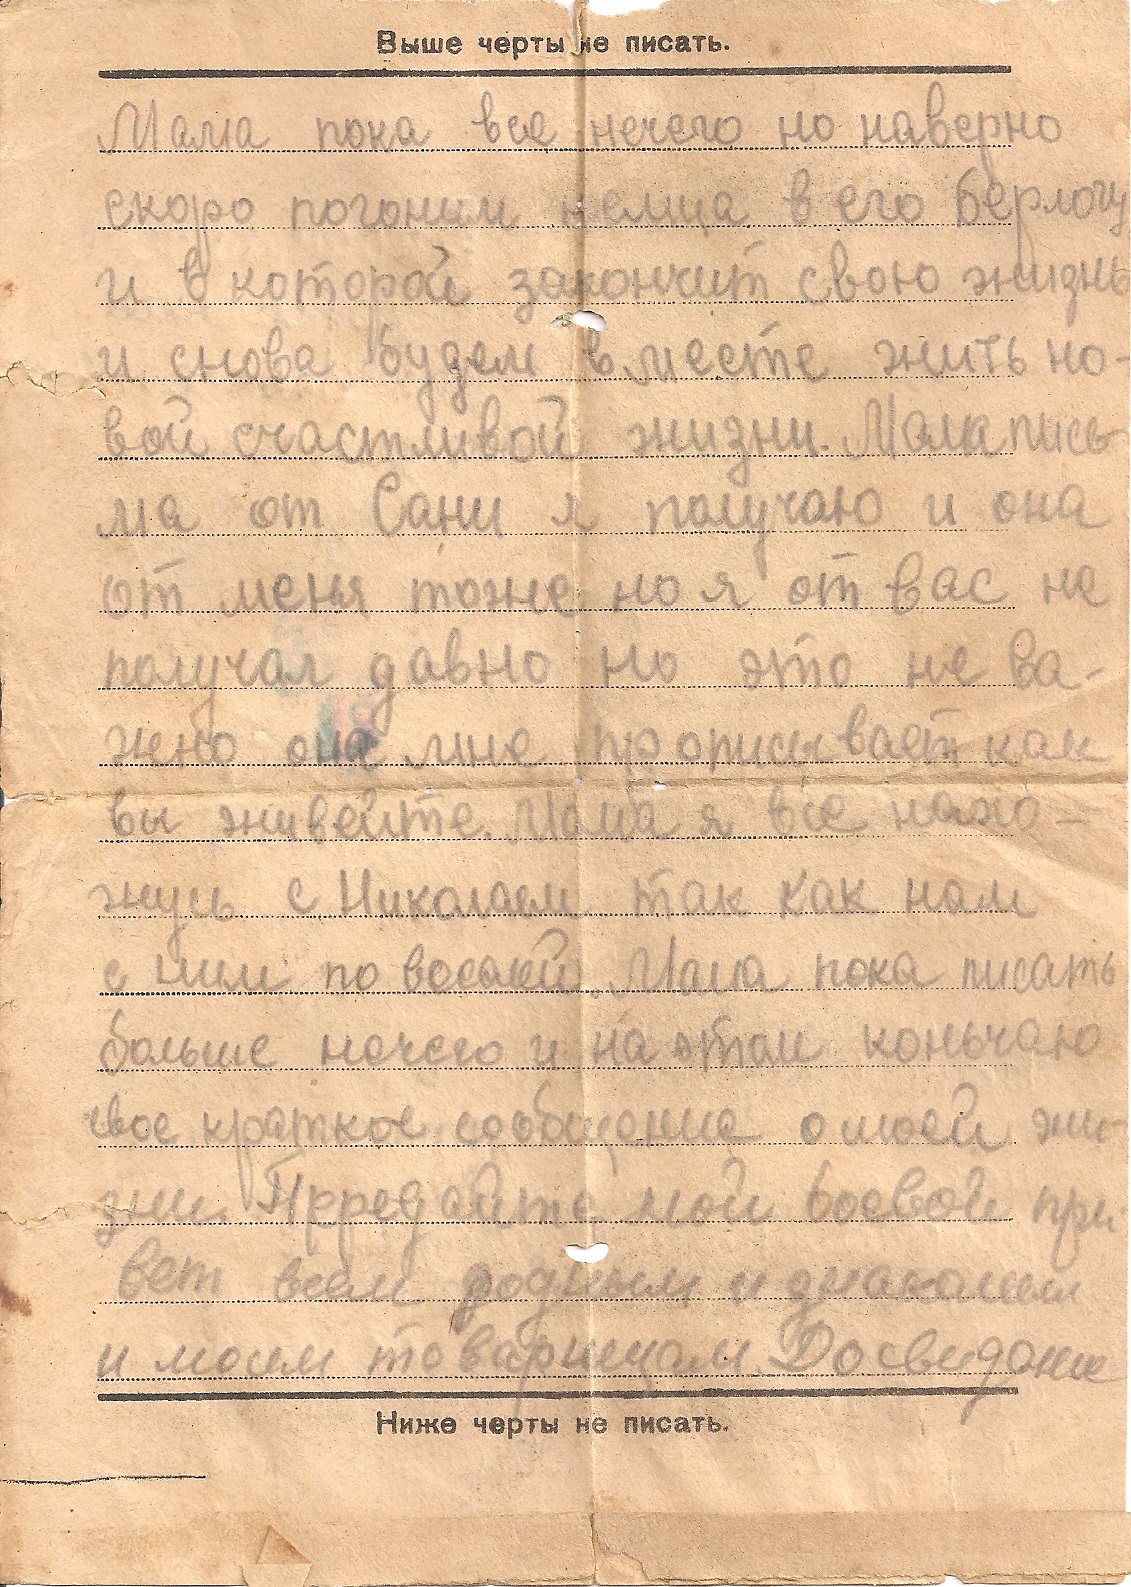 Выше черты не писать.
Мама пока все нечего но наверно
скоро погоним немца в его берлогу
и в которой закончит свою жизнь
и снова будем вместе жить но-
вой счастливой жизни. Мама пись-
ма от Сани я получаю и она
от меня тоже но я от вас не
получал давно но это не ва-
жно она мне прописывает как
вы живейте. Мама я все нахо-
жусь с Николаем так как нам
с ним по восемь. Мама пока писать
больше нечего и на этом коньчаю
свое краткое сообщение о моей жи-
зни. Прредайте мой боевой при-
вет всем родным и знакомым
и моим товарищам. Досвидание
Ниже черты не писать.